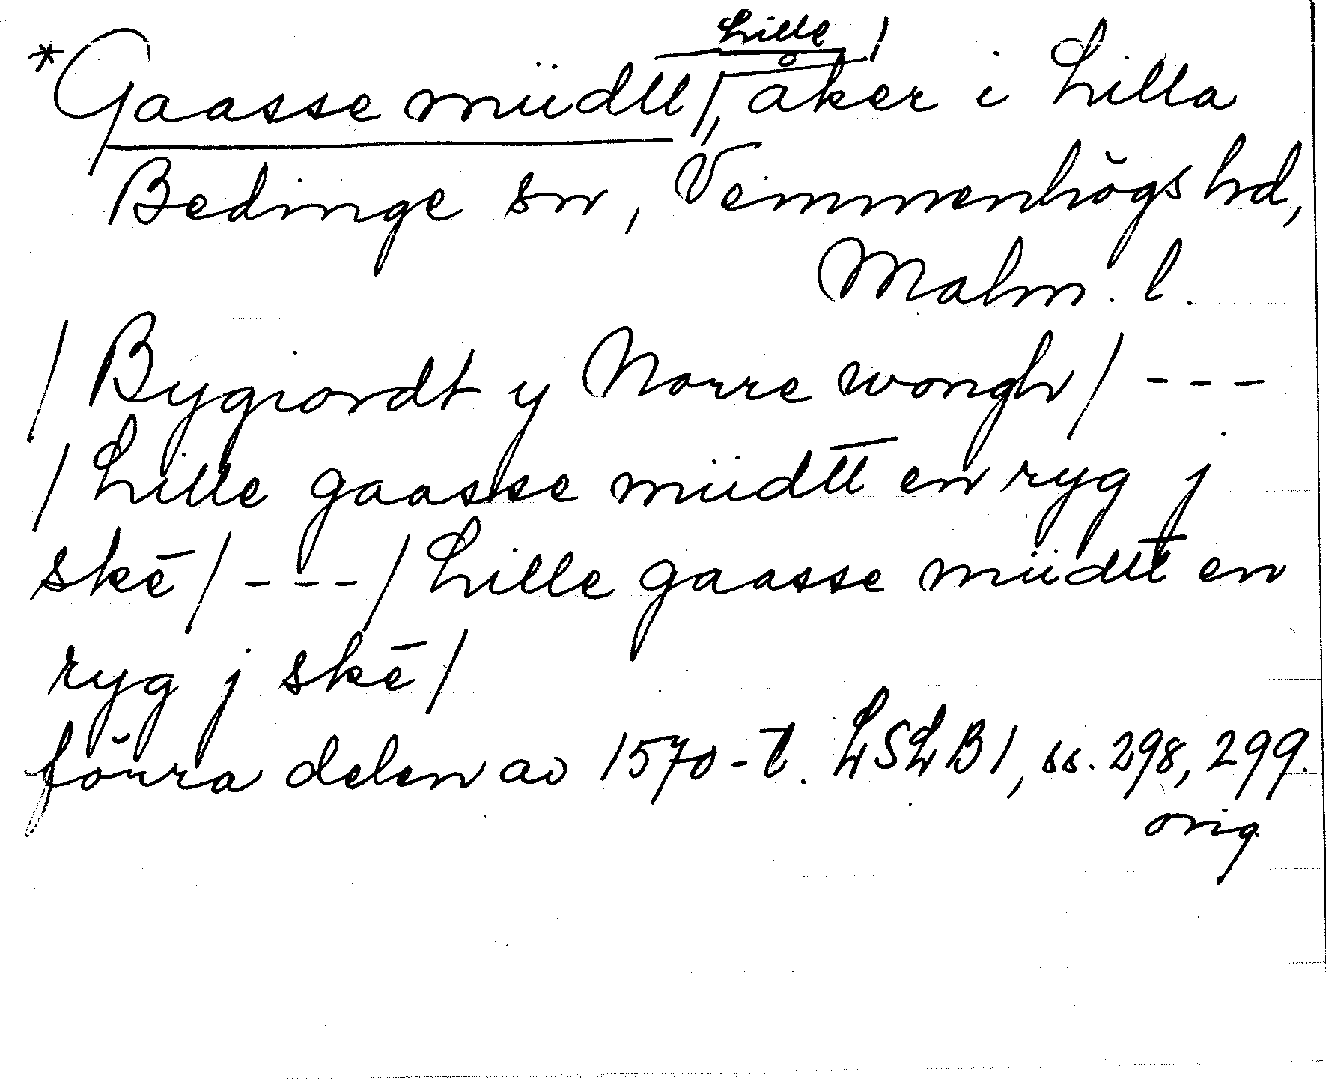 *Gaasse müdtt, Lille/, åker i Lilla
Bedinge sn, Vemmenhögs hd,
Malm. l.
/Bygiordt y Norre wongh/ ---
/Lille gaasse müdtt en ryg j
skē/ ---/Lille gaasse müdtt en
ryg j skē/
förra delen av 1570-t. LSLB 1, ss. 298, 299.
orig